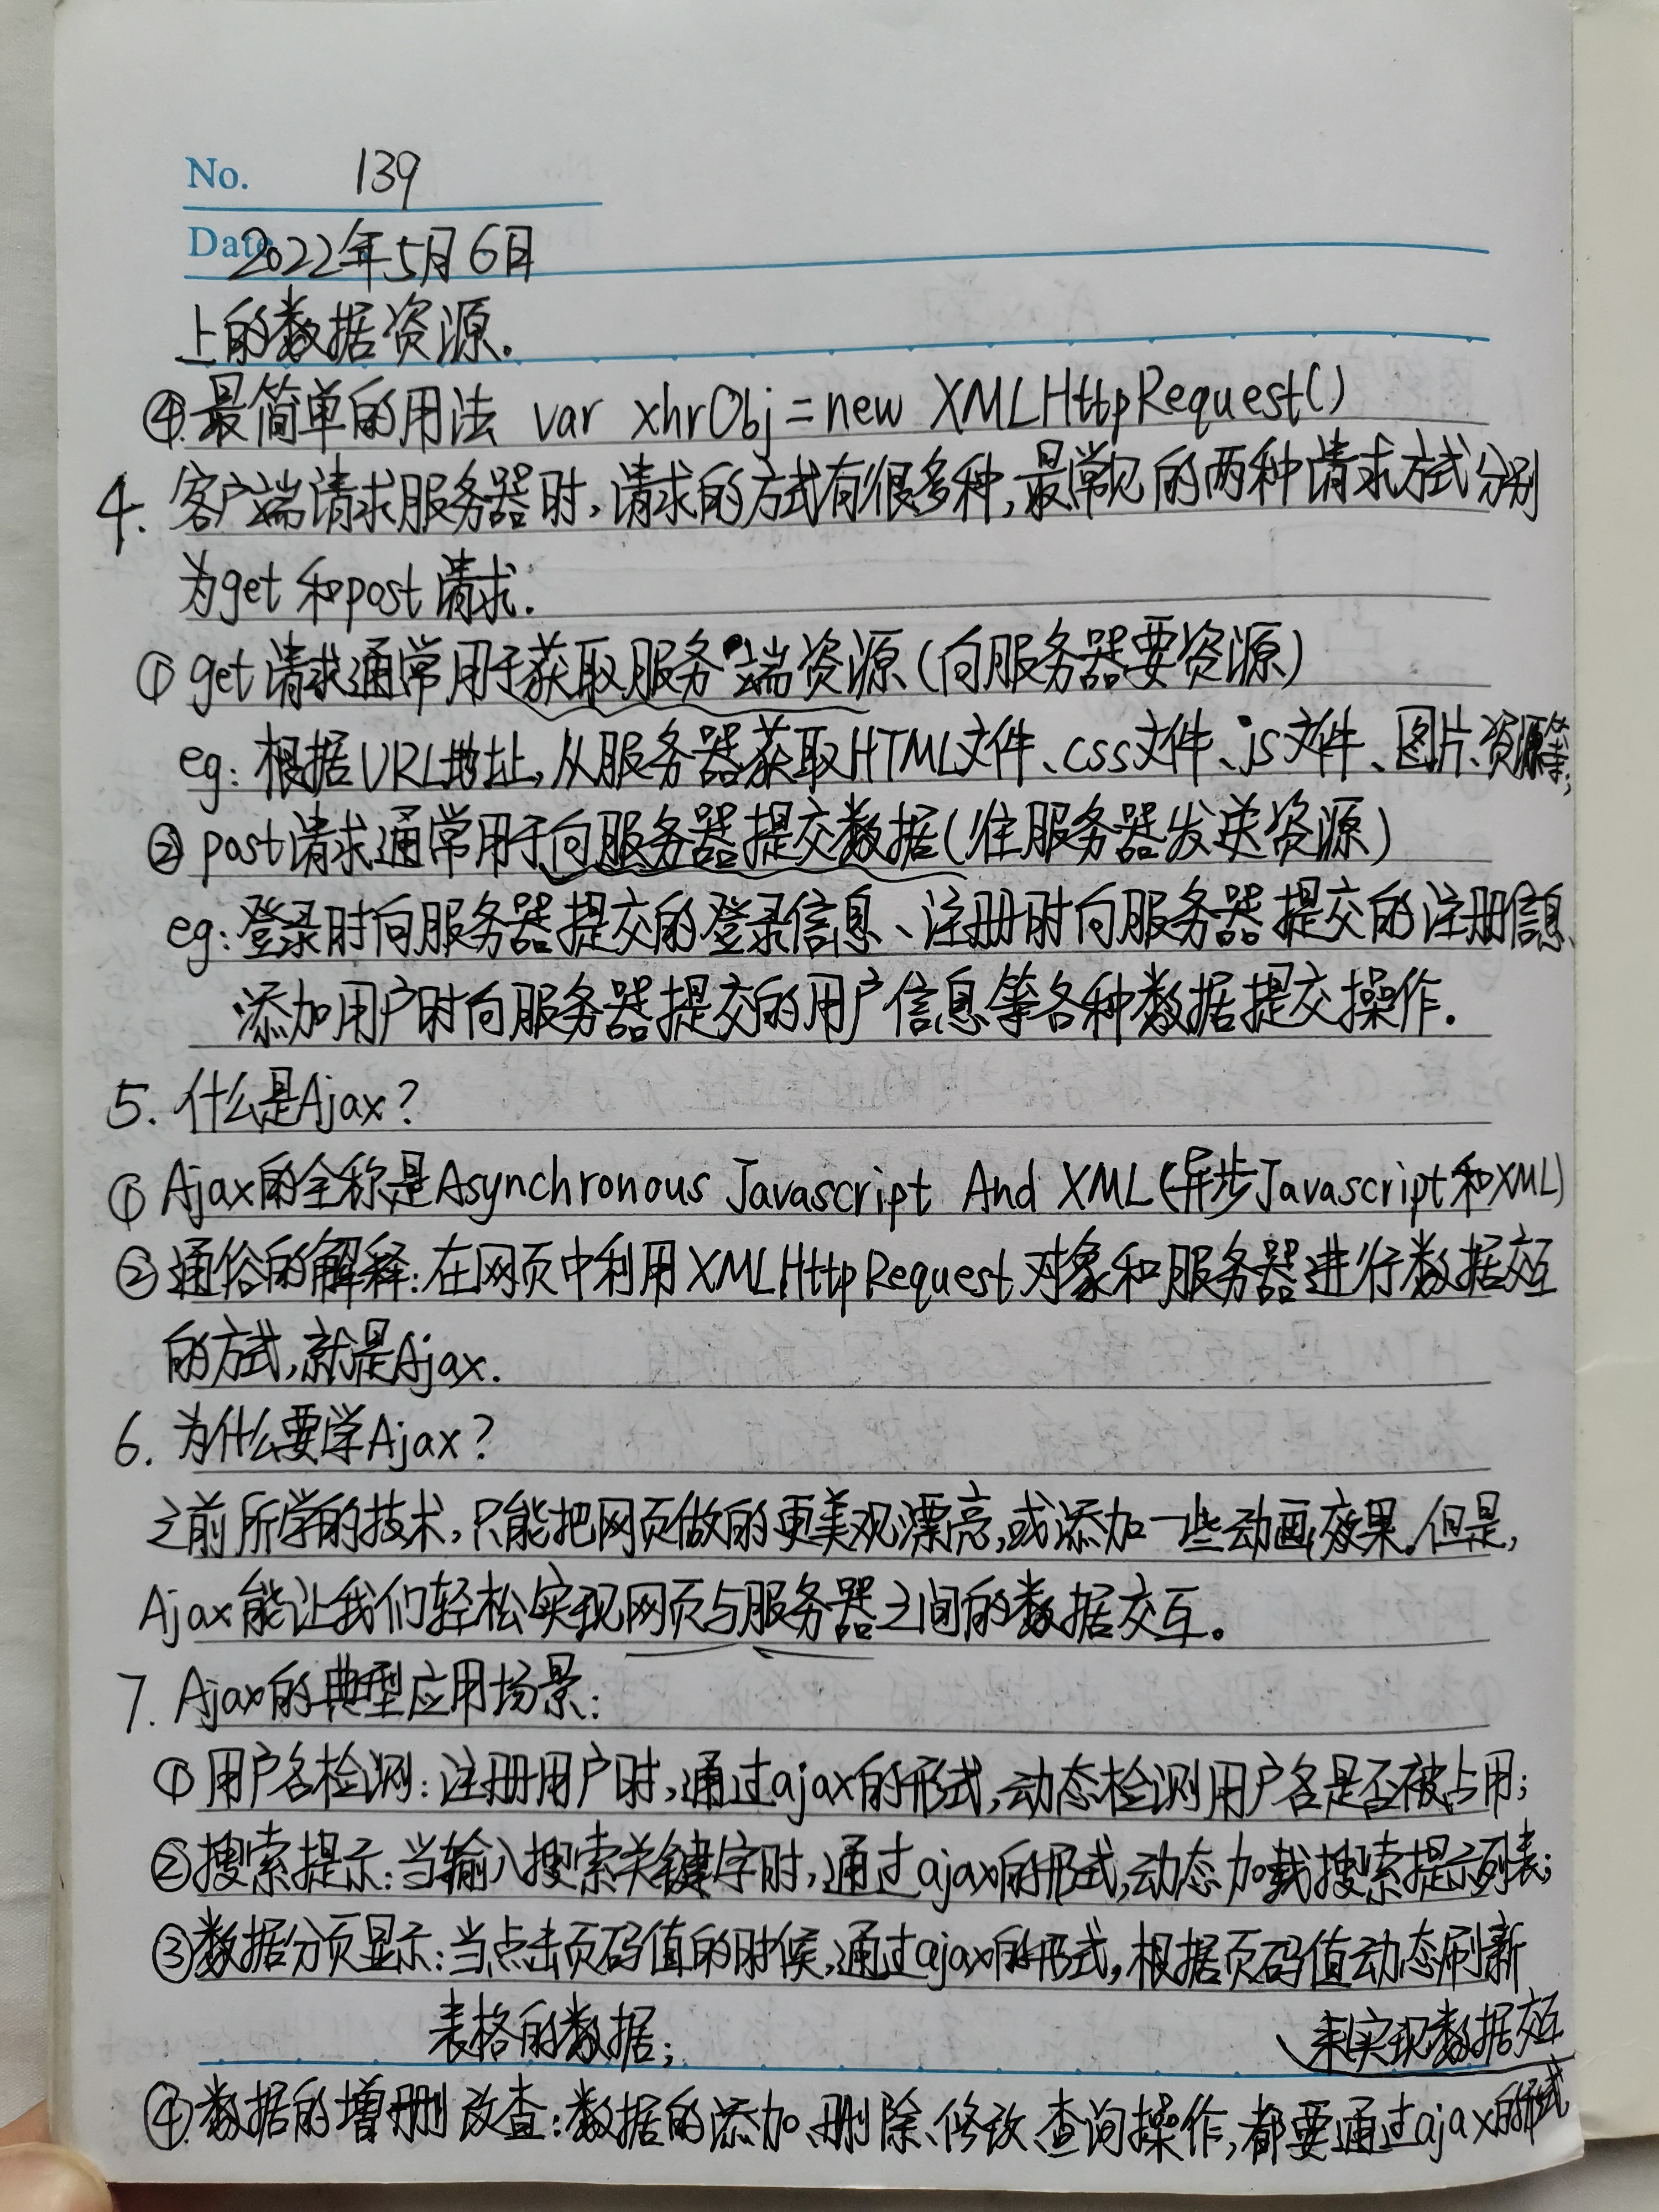 No. 139
Date 2022年5月6日
上的数据资源.
④.最简单的用法 var xhrObj=new XMLHttpRequest()
4. 客户端请求服务器时,请求的方式有很多种,最常见的两种请求方式分别
为get和post请求.
① get请求通常用于获取服务端资源(向服务器要资源)
eg: 根据URL地址,从服务器获取HTML文件、css文件、js文件、图片、资源等;
② post请求通常用于向服务器提交数据(往服务器发送资源)
eg:登录时向服务器提交的登录信息、注册时向服务器提交的注册信息、
添加用户时向服务器提交的用户信息等各种数据提交操作.
5. 什么是Ajax?
① Ajax的全称是Asynchronous Javascript And XML(异步Javascript和XML)
② 通俗的解释:在网页中利用XMLHttpRequest对象和服务器进行数据交互
的方式,就是Ajax.
6. 为什么要学Ajax?
之前所学的技术,只能把网页做的更美观漂亮,或添加一些动画效果.但是,
Ajax能让我们轻松实现网页与服务器之间的数据交互。
7. Ajax的典型应用场景:
① 用户名检测:注册用户时,通过ajax的形式,动态检测用户名是否被占用;
②搜索提示:当输入搜索关键字时,通过ajax的形式,动态加载搜索提示列表;
③数据分页显示:当点击页码值的时候,通过ajax的形式,根据页码值动态刷新
表格的数据;
来实现数据交互
④.数据的增删改查:数据的添加、删除、修改、查询操作,都要通过ajax的形式